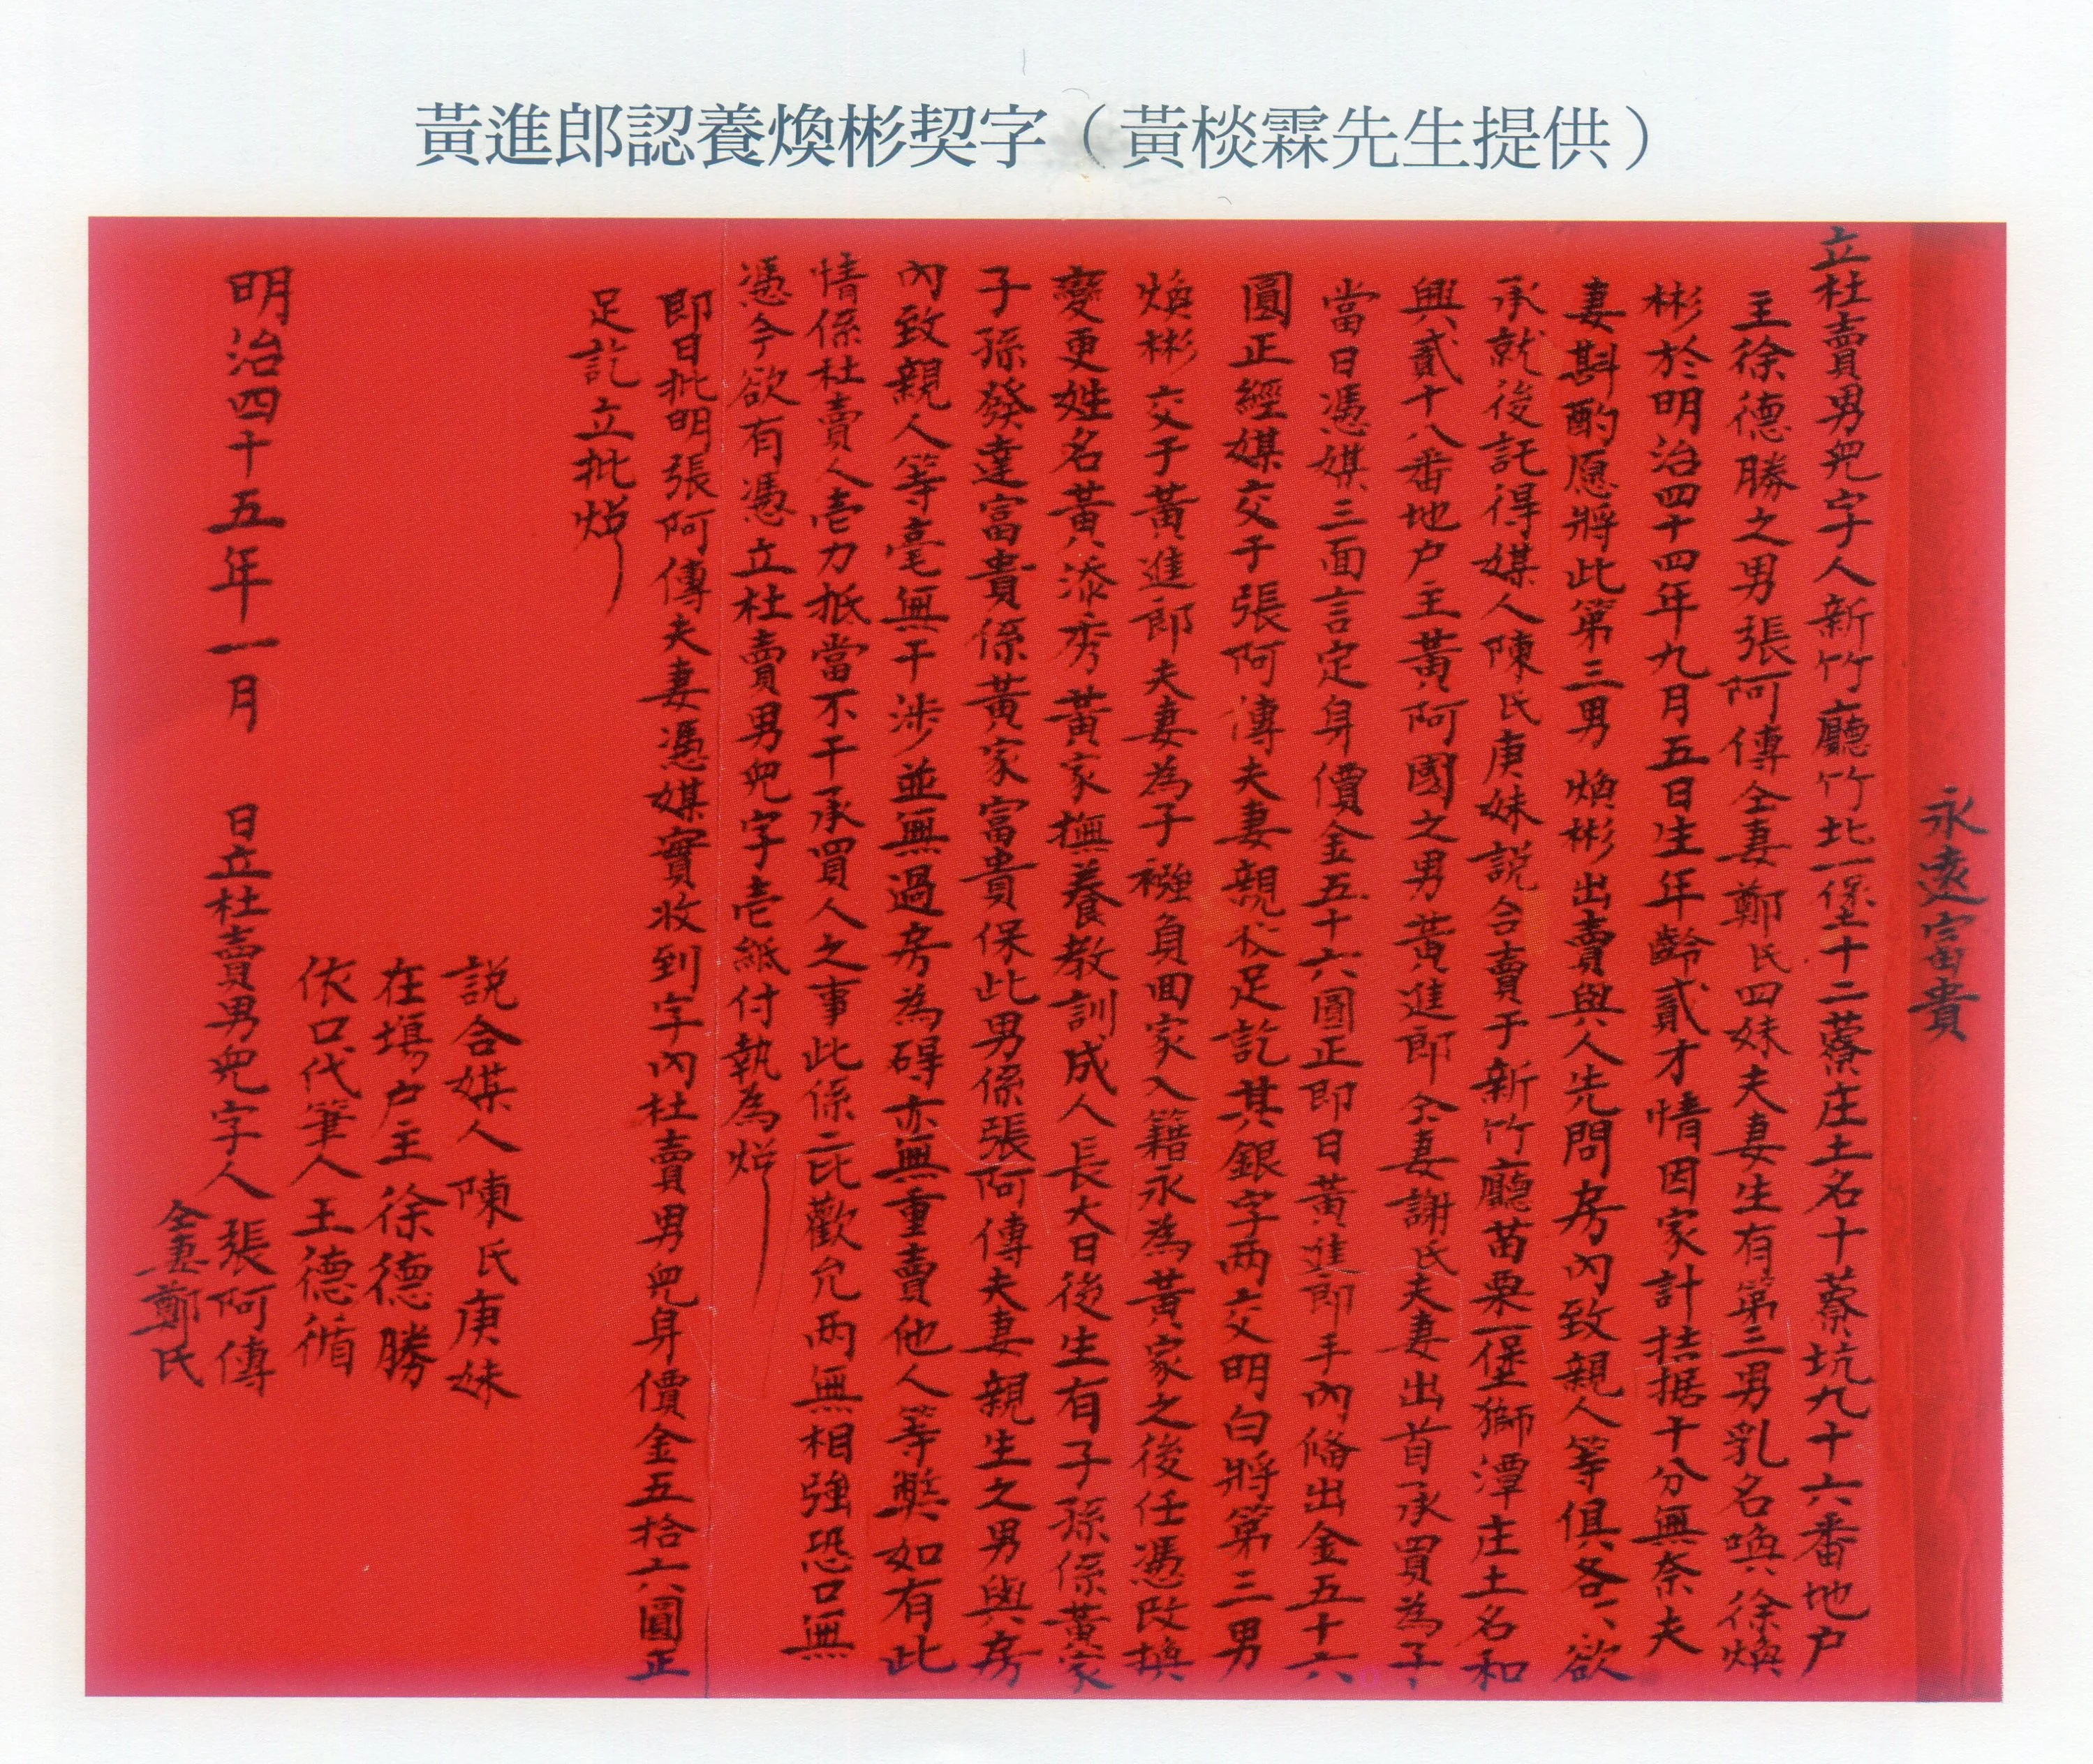 黃進郎認養煥彬契字（黃棪霖先生提供）
永遠富貴
立杜賣男兒字人新竹廳竹北一保十二藔庄土名十藔坑九十六番地户
主徐德勝之男張阿傳仝妻鄭氏四妹夫妻生有第三男乳名喚徐煥
彬於明治四十四年九月五日生年齡貳才情因家計拮据十分無奈夫
妻斟酌愿將此第三男煥彬出賣與人先問房內致親人等俱各不欲
承就後託得媒人陳氏庚妹說合賣于新竹廳苗栗一堡獅潭庄土名和
興貳十八番地户主黃阿國之男黃進郎仝妻謝氏夫妻出首承買為子
當日憑媒三面言定身價金五十六圓正即日黃進郎手內俻出金五十六
圓正經媒交于張阿傳夫妻親收足訖其銀字两交明白將第三男
煥彬交于黃進郎夫妻為子襁負回家入籍永為黃家之後任憑改換
變更姓名黃添秀黃家撫養教訓成人長大日後生有子孫係黃家
子孫發達富貴係黃家富貴保此男係張阿傳夫妻親生之男與房
內致親人等毫無干涉並無過房為碍亦無重賣他人等弊如有此
情係杜賣人壱力抵當不干承買人之事此係二比歡允两無相強恐口無
憑今欲有憑立杜賣男兒字壱紙付執為炤
即日批明張阿傳夫妻憑媒實收到字內杜賣男兒身價金五拾六圓正
足訖立批炤
說合媒人陳氏庚妹
在塲户主徐德勝
依口代筆人王德循
明治四十五年一月 日立杜賣男兒字人張阿傳
仝妻鄭氏